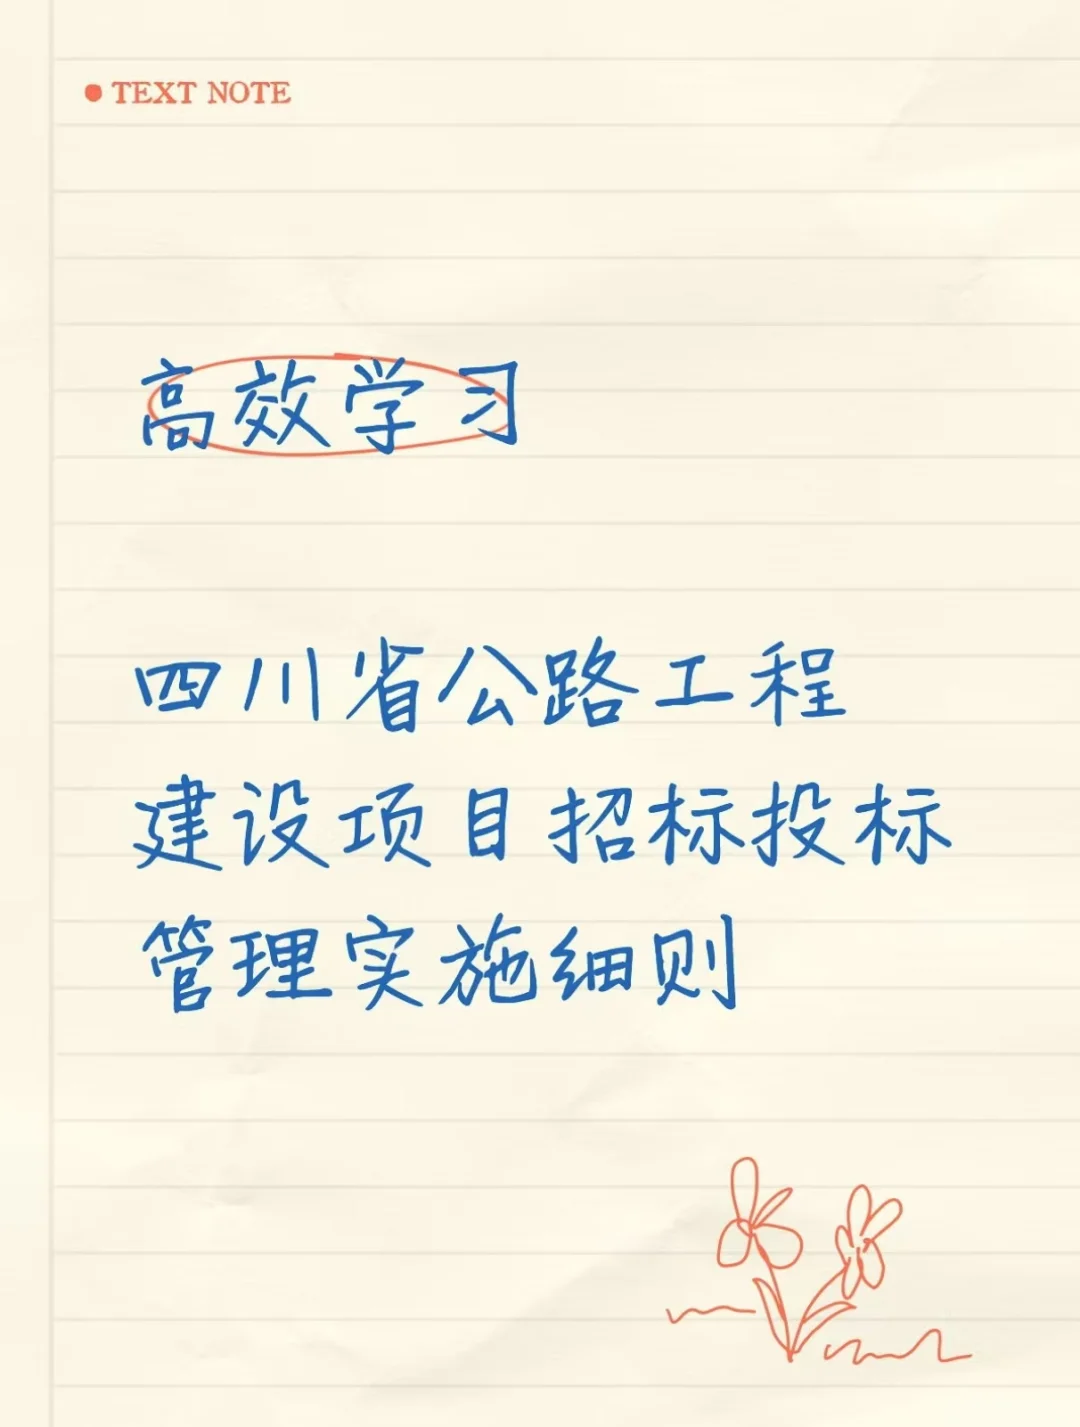 TEXT NOTE
高效学习
四川省公路工程
建设项目招标投标
管理实施细则